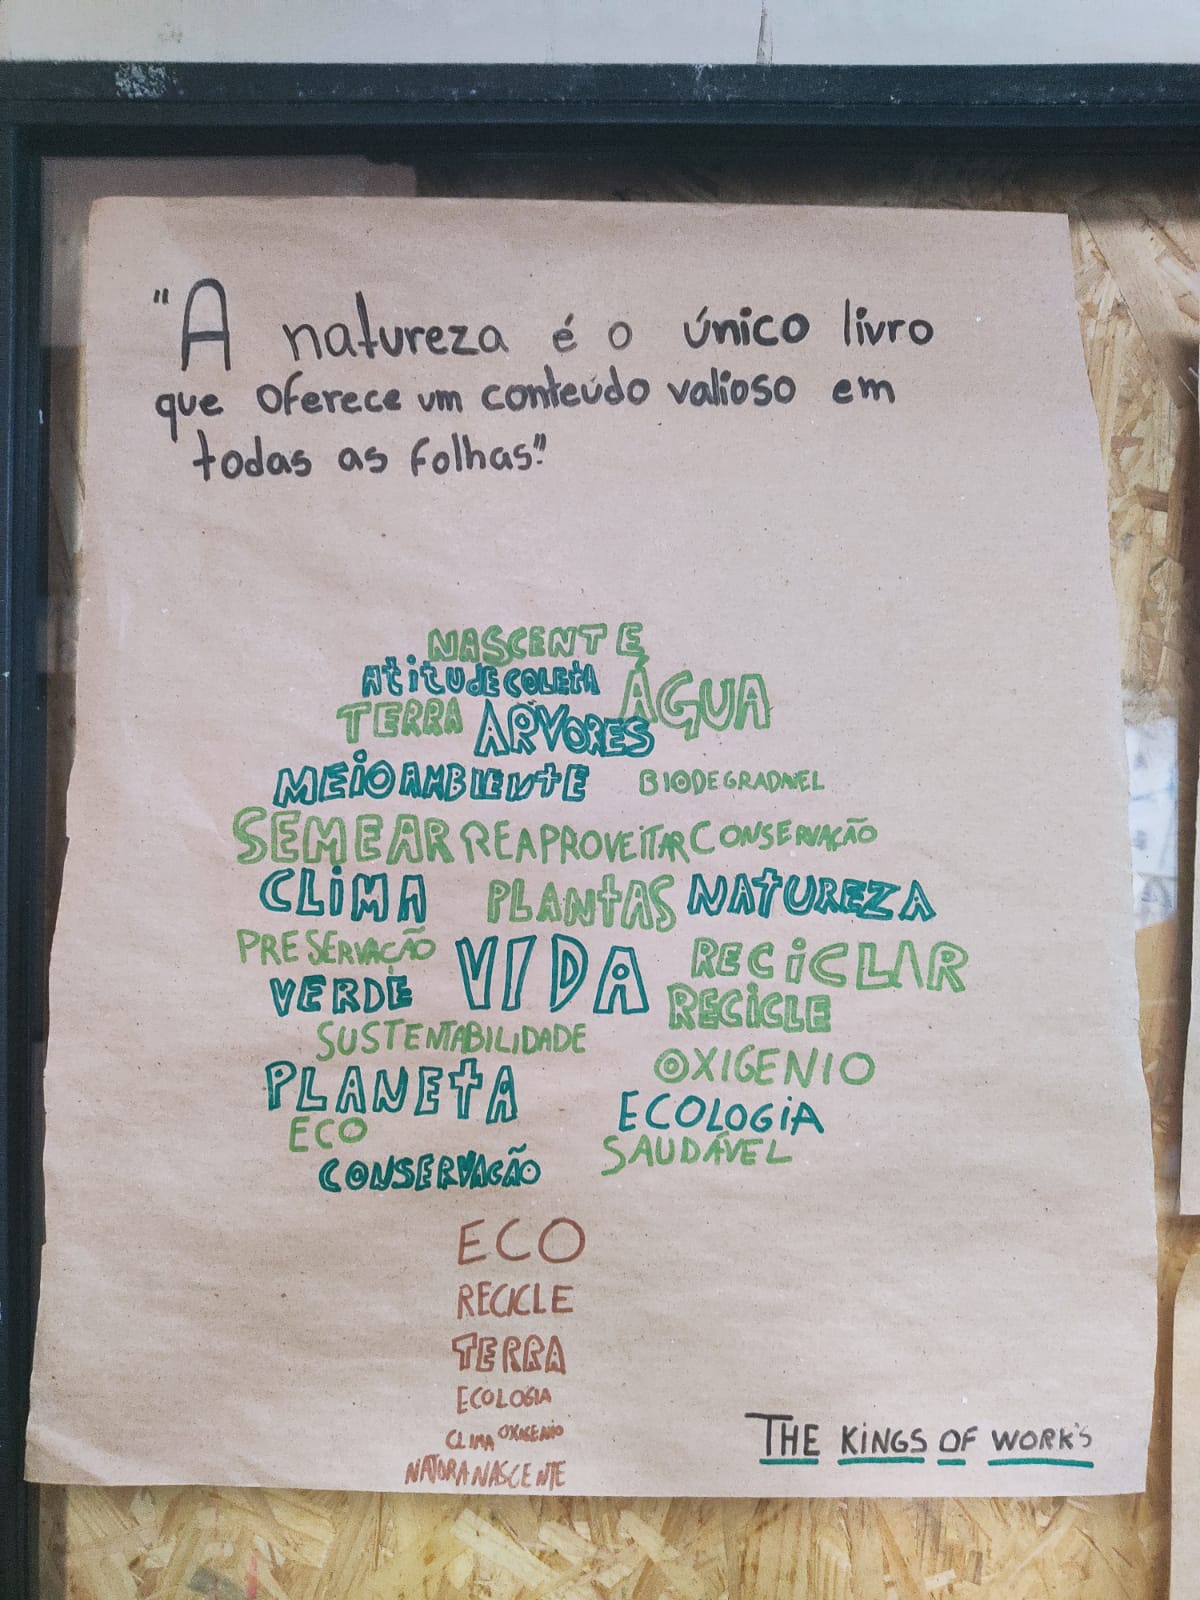 "A natureza é o único livro
que oferece um conteúdo valioso em
todas as folhas."
NASCENTE
AtitUdE COLEtA ÁGUA
TERRA ARVORES
MEiO AMBiENtE BIODEGRADVEL
SEMEAR REAPROVEITAR CONSERVAÇÃO
CLiMA PLANtAS NAtUREZA
PRESERVAÇÃO VIDA RECiCLAR
VERDE RECiCLE
SUSTENTABILIDADE OXIGENIO
PLANEtA ECOLOGiA
ECO SAUDÁVEL
CONSERVAÇÃO
ECO
RECICLE
TERRA
ECOLOGIA
CLIMA OXIGENIO
NASCENTE
THE KINGS OF WORK'S